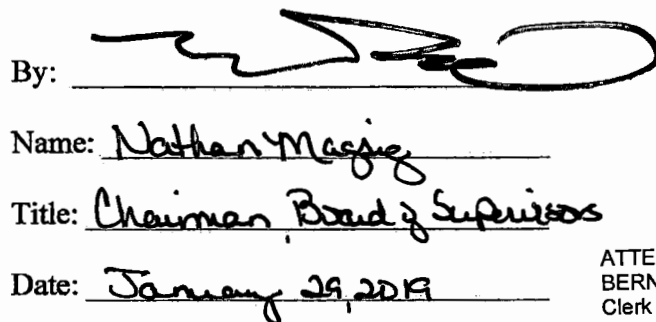 By:
Name: Nathan Magsig
Title: Chairman, Board of Supervisors
Date: January 29, 2019
ATTE
BERN
Clerk